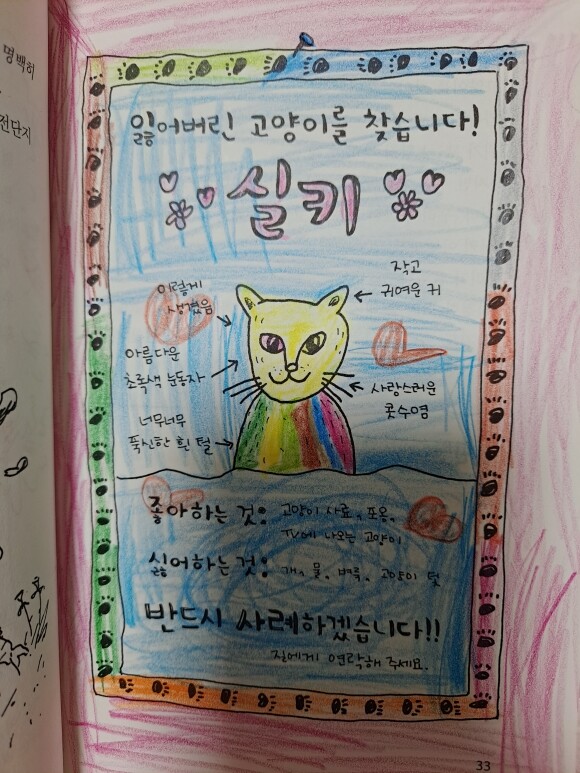 명백히
전단지
잃어버린 고양이를 찾습니다!
실키
이렇게
생겼음
작고
귀여운 귀
아름다운
초록색 눈동자
사랑스러운
콧수염
너무너무
푹신한 흰 털
좋아하는 것: 고양이 사료, 포옹,
TV에 나오는 고양이
싫어하는 것: 개, 물, 벼룩, 고양이 덫
반드시 사례하겠습니다!!
질에게 연락해 주세요.
33